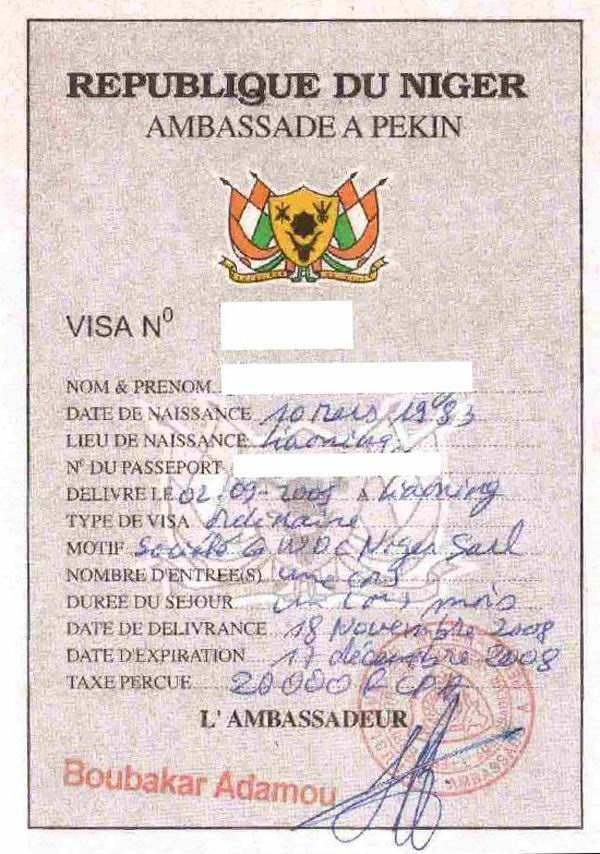 REPUBLIQUE DU NIGER
AMBASSADE A PEKIN
VISA Nº
NOM & PRENOM
DATE DE NAISSANCE 10 mars 1983
LIEU DE NAISSANCE Liaoning
Nº DU PASSEPORT
DELIVRE LE 02-09-2008 A Liaoning
TYPE DE VISA ordinaire
MOTIF Niger Sarl
NOMBRE D'ENTREE(S) une
DUREE DU SEJOUR un mois
DATE DE DELIVRANCE 18 Novembre 2008
DATE D'EXPIRATION 17 décembre 2008
TAXE PERCUE 20000 F CFA
L'AMBASSADEUR
Boubakar Adamou